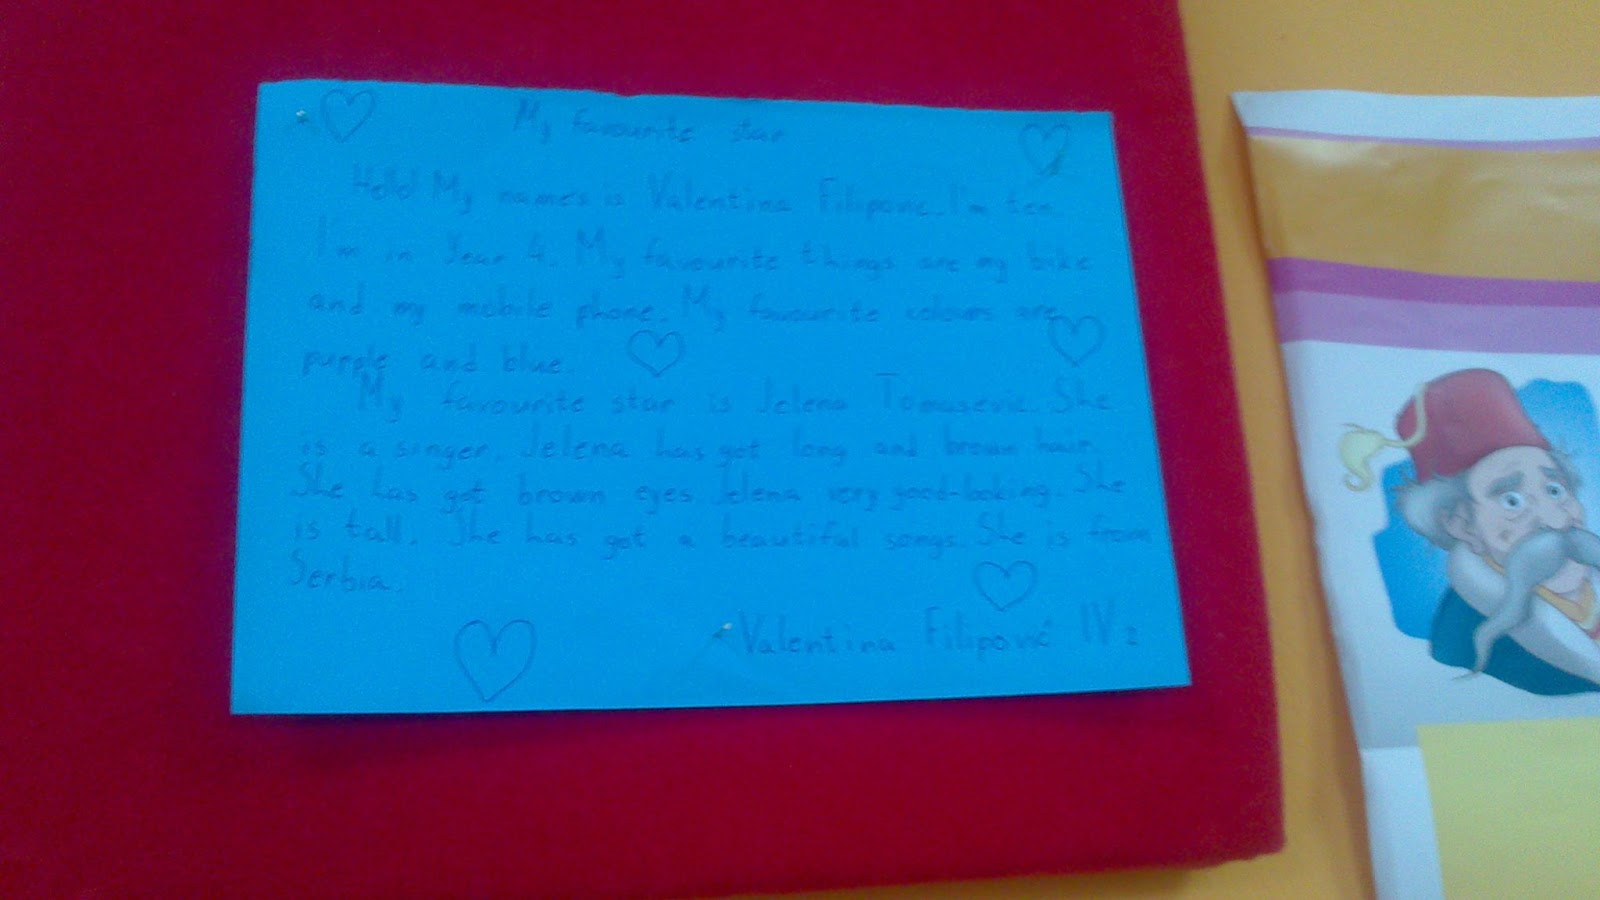 My favourite star
Hello! My names is Valentina Filipovic. I'm ten.
I'm in Year 4. My favourite things are my bike
and my mobile phone. My favourite colours are
purple and blue.
My favourite star is Jelena Tomasevic. She
is a singer. Jelena has got long and brown hair.
She has got brown eyes. Jelena very good-looking. She
is tall. She has got a beautiful songs. She is from
Serbia.
Valentina Filipović IV 2